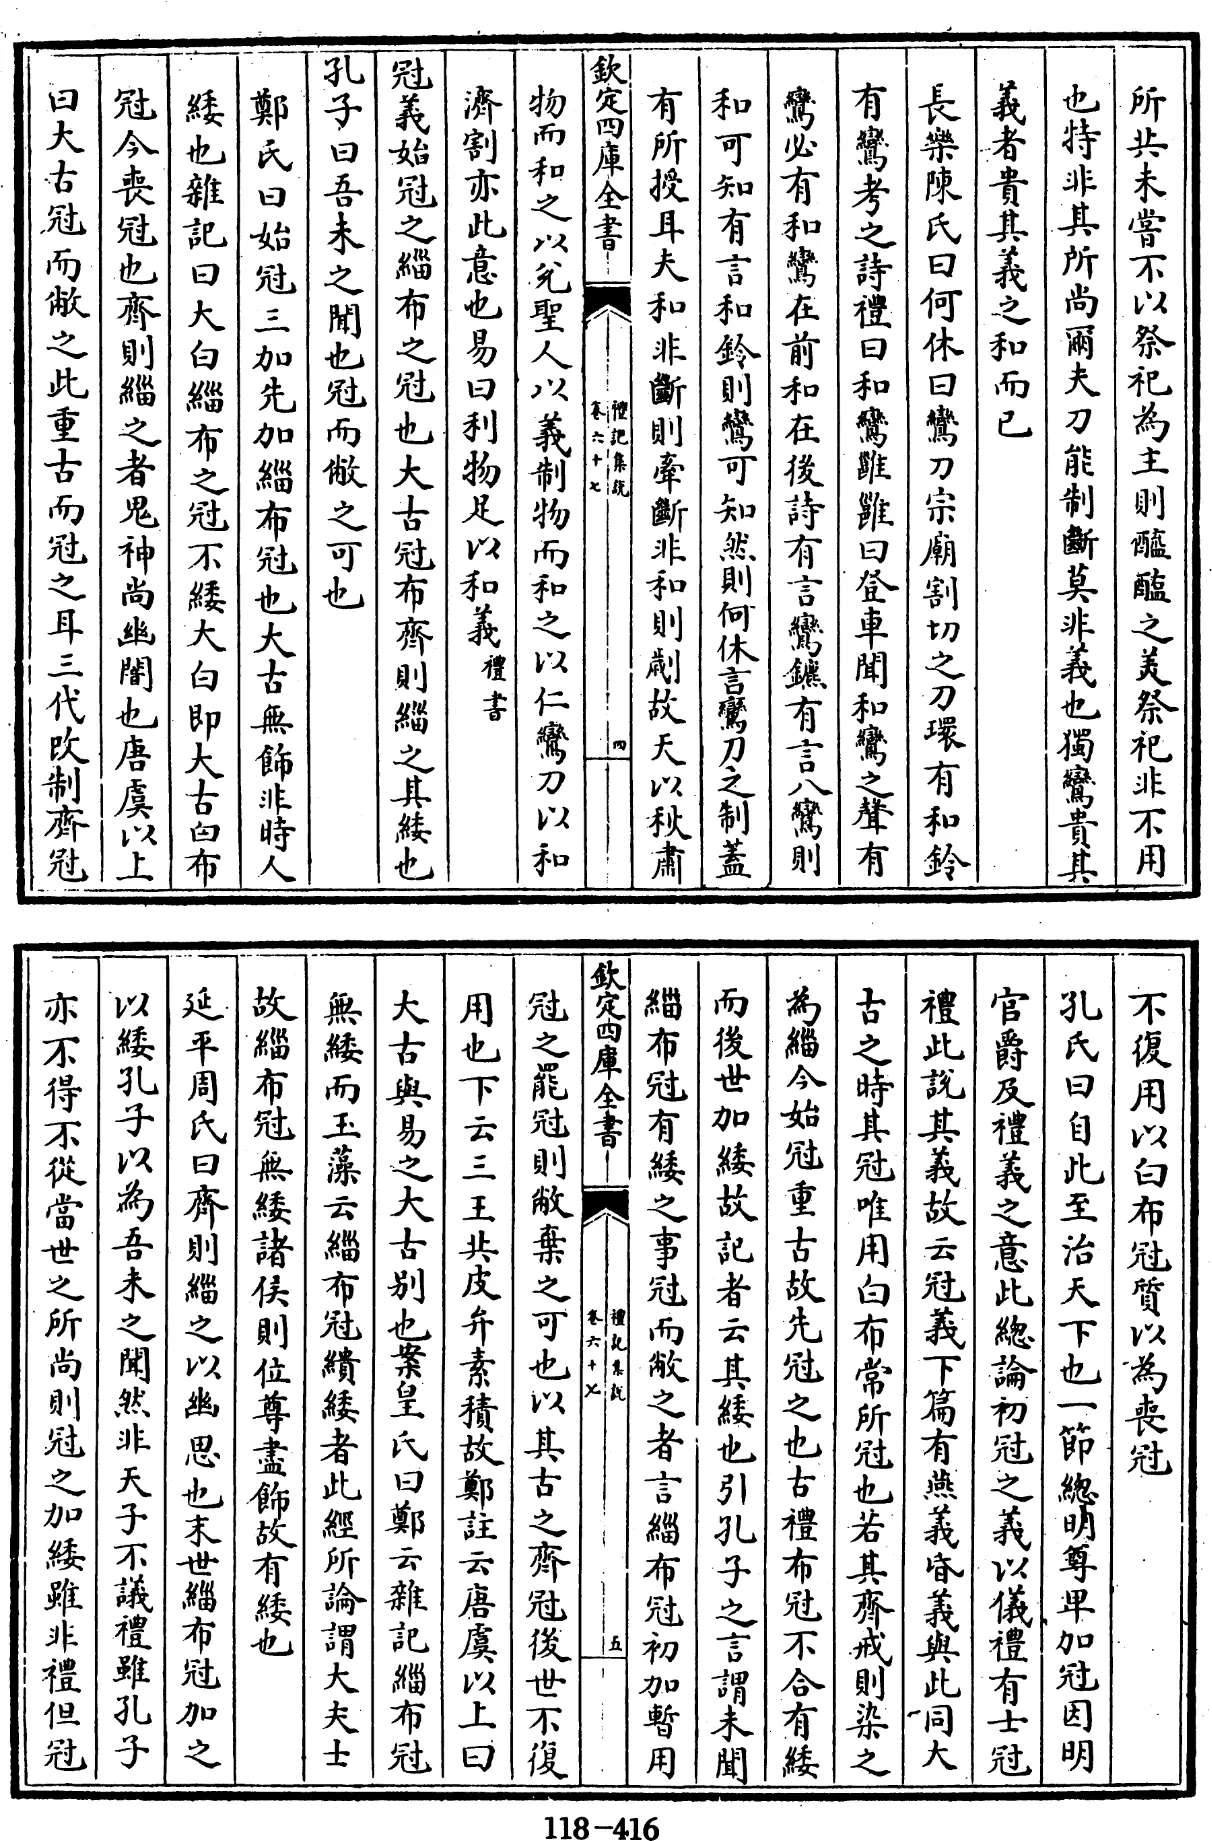 所共未嘗不以祭祀為主則醯醢之美祭祀非不用
也特非其所尚爾夫刀能制斷莫非義也獨鸞貴其
義者貴其義之和而已
長樂陳氏曰何休曰鸞刀宗廟割切之刀環有和鈴
有鸞考之詩禮曰和鸞雝雝曰登車聞和鸞之聲有
鸞必有和鸞在前和在後詩有言鸞鑣有言八鸞則
和可知有言和鈴則鸞可知然則何休言鸞刀之制蓋
有所授耳夫和非斷則牽斷非和則劌故天以秋肅
欽定四庫全書
禮記集說
卷六十七
四
物而和之以兊聖人以義制物而和之以仁鸞刀以和
濟割亦此意也易曰利物足以和義禮書
冠義始冠之緇布之冠也大古冠布齊則緇之其緌也
孔子曰吾未之聞也冠而敝之可也
鄭氏曰始冠三加先加緇布冠也大古無飾非時人
緌也雜記曰大白緇布之冠不緌大白即大古白布
冠今喪冠也齊則緇之者鬼神尚幽闇也唐虞以上
曰大古冠而敝之此重古而冠之耳三代改制齊冠
不復用以白布冠質以為喪冠
孔氏曰自此至治天下也一節總明尊卑加冠因明
官爵及禮義之意此總論初冠之義以儀禮有士冠
禮此說其義故云冠義下篇有燕義昏義與此同大
古之時其冠唯用白布常所冠也若其齊戒則染之
為緇今始冠重古故先冠之也古禮布冠不合有緌
而後世加緌故記者云其緌也引孔子之言謂未聞
緇布冠有緌之事冠而敝之者言緇布冠初加暫用
欽定四庫全書
禮記集說
卷六十七
五
冠之罷冠則敝棄之可也以其古之齊冠後世不復
用也下云三王共皮弁素積故鄭註云唐虞以上曰
大古與易之大古别也案皇氏曰鄭云雜記緇布冠
無緌而玉藻云緇布冠繢緌者此經所論謂大夫士
故緇布冠無緌諸侯則位尊盡飾故有緌也
延平周氏曰齊則緇之以幽思也末世緇布冠加之
以緌孔子以為吾未之聞然非天子不議禮雖孔子
亦不得不從當世之所尚則冠之加緌雖非禮但冠
118-416